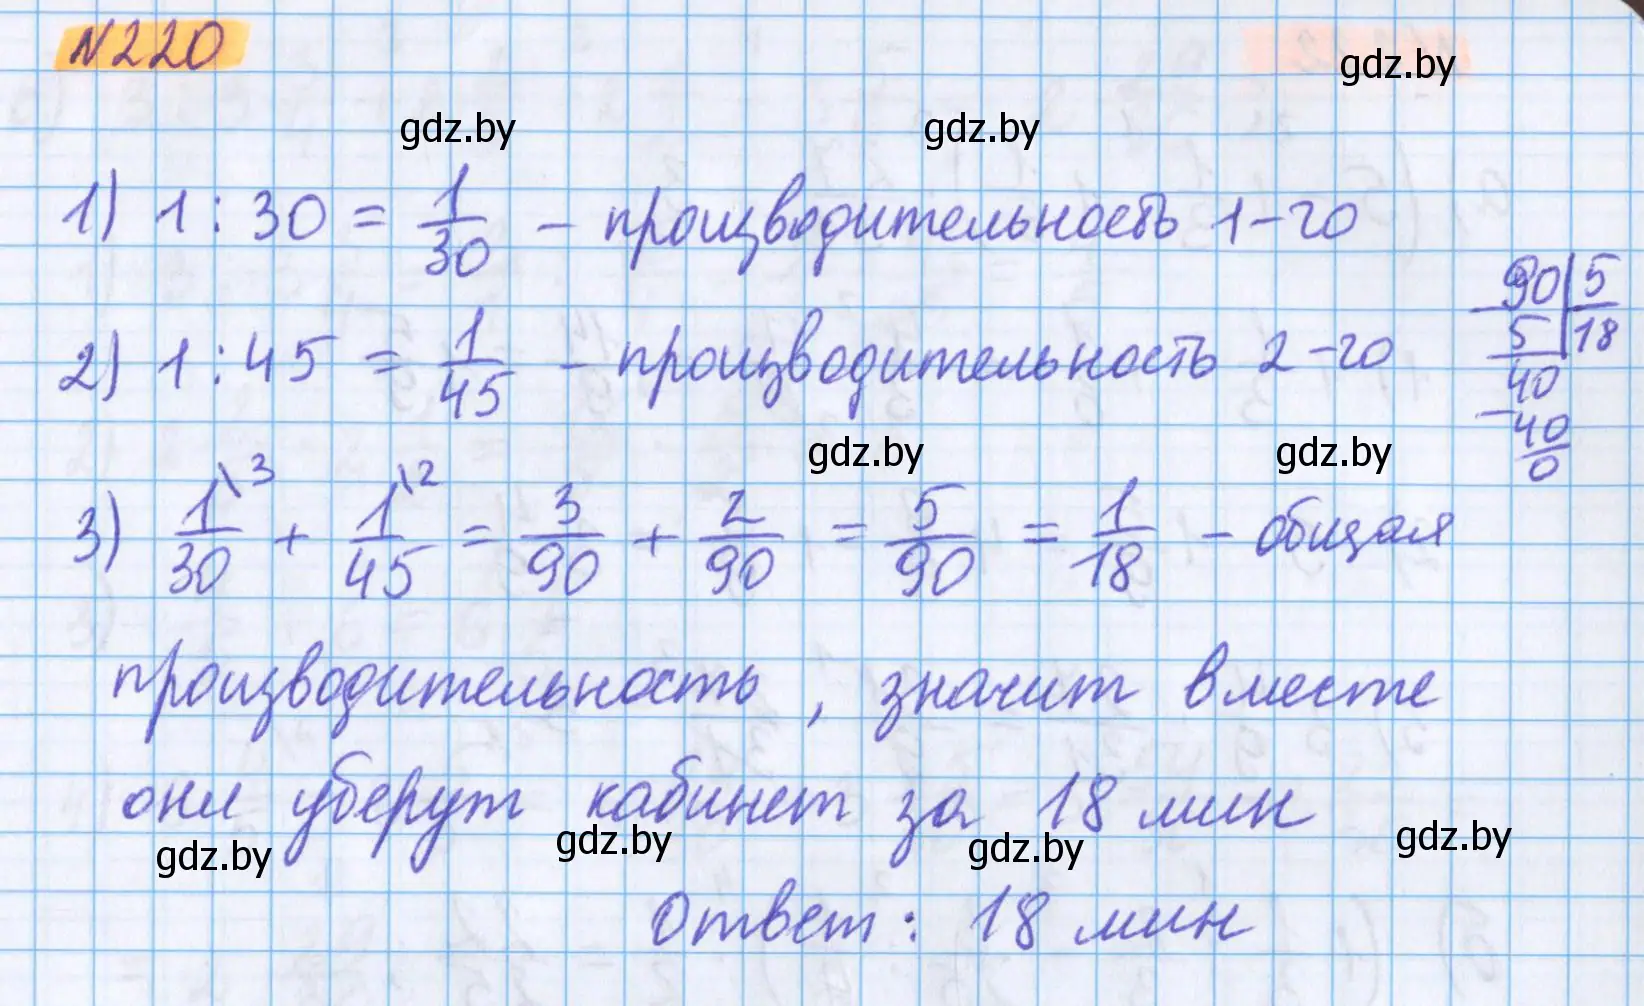 №220
gdz.by
gdz.by gdz.by
1) 1 : 30 = 1/30 – производительность 1-го
2) 1 : 45 = 1/45 – производительность 2-го
90 | 5
5 | 18
40
40
0
gdz.by gdz.by
3) 1\3/30 + 1\2/45 = 3/90 + 2/90 = 5/90 = 1/18 – общая
производительность, значит вместе
они уберут кабинет за 18 мин
gdz.by gdz.by gdz.by gdz.by
Ответ: 18 мин